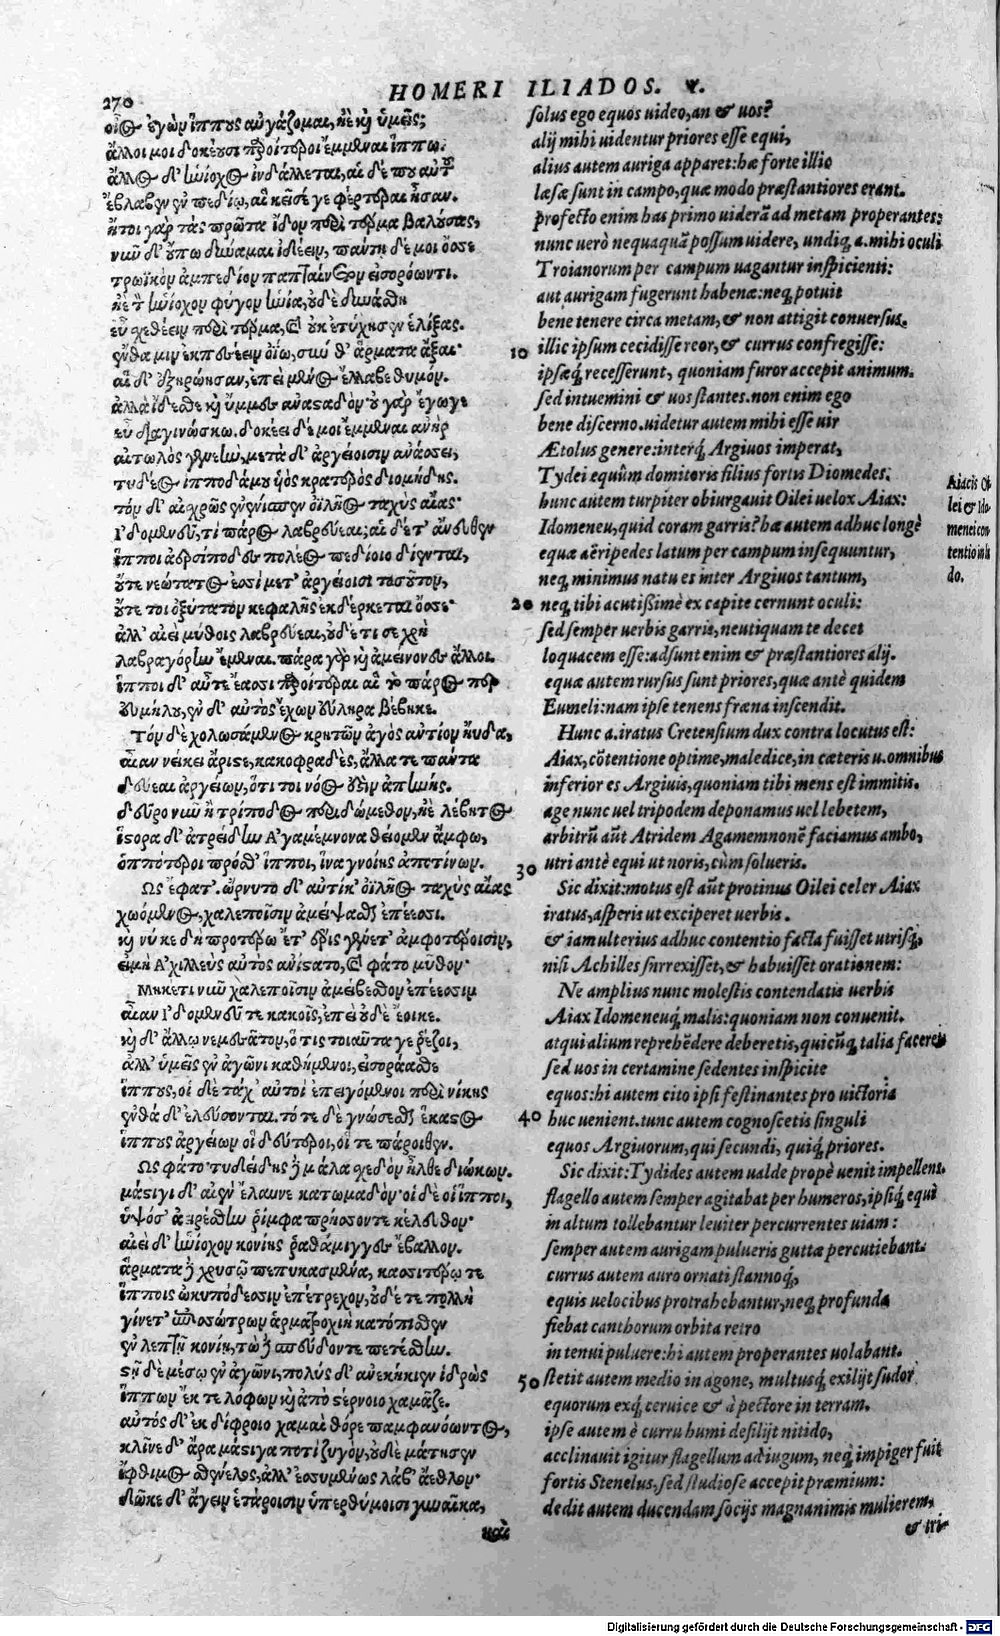 270
HOMERI ILIADOS. Ψ.
οἶος ἐγὼν ἵππους αὐγάζομαι, ἠὲ καὶ ὑμεῖς;
ἄλλοι μοι δοκέουσι παροίτεροι ἔμμεναι ἵπποι·
ἄλλος δ' ἡνίοχος ἰνδάλλεται, αἱ δέ που αὐτοῦ
ἔβλαβεν ἐν πεδίῳ, αἳ κεῖσέ γε φέρτεραι ἦσαν.
ἤτοι γὰρ τὰς πρῶτα ἴδον περὶ τέρμα βαλούσας,
νῦν δ' οὔπω δύναμαι ἰδέειν, πάντη δέ μοι ὄσσε
τρωϊκὸν ἀμπεδίον παπταίνετον εἰσορόωντι.
ἠὲ τὸν ἡνίοχον φύγον ἡνία, οὐδὲ δυνάσθη
εὖ σχεθέειν περὶ τέρμα, καὶ οὐκ ἐτύχησεν ἑλίξας.
ἔνθα μιν ἐκπεσέειν ὀΐω, σύν θ' ἅρματα ἆξαι·
αἱ δ' ἐξηρώησαν, ἐπεὶ μένος ἔλλαβε θυμόν.
ἀλλὰ ἴδεσθε καὶ ὔμμες ἀναςαδόν· οὐ γὰρ ἔγωγε
εὖ διαγινώσκω. δοκέει δέ μοι ἔμμεναι ἀνὴρ
αἰτωλὸς γενεὴν, μετὰ δ' ἀργείοισιν ἀνάσσει,
τυδέος ἱπποδάμου υἱὸς κρατερὸς διομήδης.
τὸν δ' αἰσχρῶς ἐνένιπεν ὀϊλῆος ταχὺς αἴας·
Ἰδομενεῦ, τί πάρος λαβρεύεαι; αἱ δέ τ' ἄνευθεν
ἵπποι ἀερσίποδες πολέος πεδίοιο δίενται,
οὔτε νεώτατος ἐσσὶ μετ' ἀργείοισι τοσοῦτον,
οὔτε τοι ὀξύτατον κεφαλῆς ἐκδέρκεται ὄσσε·
ἀλλ' αἰεὶ μύθοις λαβρεύεαι, οὐδέ τι σε χρὴ
λαβραγόρην ἔμεναι. πάρα γὰρ καὶ ἀμείνονες ἄλλοι.
ἵπποι δ' αὖτε ἔασσι παροίτεραι αἳ τὸ πάρος περ
Εὐμήλου, ἐν δ' αὐτὸς ἔχων εὔληρα βέβηκε.
Τὸν δὲ χολωσάμενος κρητῶν ἀγὸς ἀντίον ηὔδα,
αἶαν νείκει ἄριςε, κακοφραδὲς, ἄλλα τε πάντα
δεύεαι ἀργείων, ὅτι τοι νόος ἐςὶν ἀπηνής.
δεῦρο νῦν ἢ τρίποδος περιδώμεθον, ἠὲ λέβητος
ἵςορα δ' ἀτρείδην Ἀγαμέμνονα θείομεν ἄμφω,
ὁππότεραι πρόσθ' ἵπποι, ἵνα γνοίης ἀποτίνων.
Ὣς ἔφατ'. ὤρνυτο δ' αὐτίκ' ὀϊλῆος ταχὺς αἴας
χωόμενος, χαλεποῖσιν ἀμείψασθαι ἐπέεσσι.
καὶ νύ κε δὴ προτέρω ἔτ' ἔρις γένετ' ἀμφοτέροισιν,
εἰ μὴ Ἀχιλλεὺς αὐτὸς ἀνίςατο, καὶ φάτο μῦθον·
Μηκέτι νῦν χαλεποῖσιν ἀμείβεσθον ἐπέεσσιν
αἶαν Ἰδομενεῦ τε κακοῖς, ἐπεὶ οὐδὲ ἔοικε.
καὶ δ' ἄλλῳ νεμεσᾶτον, ὅτις τοιαῦτά γε ῥέζοι,
ἀλλ' ὑμεῖς ἐν ἀγῶνι καθήμενοι, εἰσοράασθε
ἵππους, οἱ δὲ τάχ' αὐτοὶ ἐπειγόμενοι περὶ νίκης
ἐνθάδ' ἐλεύσονται. τότε δὲ γνώσεσθε ἕκαςος
ἵππους ἀργείων οἳ δεύτεροι, οἵ τε πάροιθεν.
Ὣς φάτο· τυδείδης δὲ μάλα σχεδὸν ἦλθε διώκων.
μάςιγι δ' αἰὲν ἔλαυνε κατωμαδόν· οἱ δέ οἱ ἵπποι,
ὑψόσ' ἀειρέσθην ῥίμφα πρήσσοντε κέλευθον·
αἰεὶ δ' ἡνίοχον κονίης ῥαθάμιγγες ἔβαλλον.
ἅρματα δὲ χρυσῷ πεπυκασμένα, κασσιτέρῳ τε
ἵπποις ὠκυπόδεσσιν ἐπέτρεχον, οὐδέ τε πολλὴ
γίνετ' ἐπισσώτρων ἁρματροχιὴ κατόπισθεν
ἐν λεπτῇ κονίῃ, τὼ δὲ σπεύδοντε πετέσθην.
ςῆ δὲ μέσῳ ἐν ἀγῶνι, πολὺς δ' ἀνεκήκιεν ἱδρὼς
ἵππων ἔκ τε λόφων καὶ ἀπὸ ςέρνοιο χαμᾶζε.
αὐτὸς δ' ἐκ δίφροιο χαμαὶ θόρε παμφανόωντος,
κλῖνε δ' ἄρα μάςιγα ποτὶ ζυγόν, οὐδὲ μάτησεν
ἴφθιμος σθένελος, ἀλλ' ἐσσυμένως λάβ' ἄεθλον·
δῶκε δ' ἄγειν ἑτάροισιν ὑπερθύμοισι γυναῖκα,
καὶ
solus ego equos uideo, an & uos?
alij mihi uidentur priores esse equi,
alius autem auriga apparet: hæ forte illic
læsæ sunt in campo, quæ modo præstantiores erant.
profecto enim has primo uiderã ad metam properantes:
nunc uerò nequaquã possum uidere, undiq; a. mihi oculi
Troianorum per campum uagantur inspicienti:
aut aurigam fugerunt habenæ: neq; potuit
bene tenere circa metam, & non attigit conuersus.
10 illic ipsum cecidisse reor, & currus confregisse:
ipsæq; recesserunt, quoniam furor accepit animum.
sed intuemini & uos stantes. non enim ego
bene discerno. uidetur autem mihi esse uir
Ætolus genere: interq; Argiuos imperat,
Tydei equûm domitoris filius fortis Diomedes.
hunc autem turpiter obiurgauit Oilei uelox Aiax:
Idomeneu, quid coram garris? hæ autem adhuc longè
equæ aëripedes latum per campum insequuntur,
neq; minimus natu es inter Argiuos tantum,
20 neq; tibi acutißimè ex capite cernunt oculi:
sed semper uerbis garris, neutiquam te decet
loquacem esse: adsunt enim & præstantiores alij.
equæ autem rursus sunt priores, quæ antè quidem
Eumeli: nam ipse tenens fræna inscendit.
Hunc a. iratus Cretensium dux contra locutus est:
Aiax, cõtentione optime, maledice, in cæteris u. omnibus
inferior es Argiuis, quoniam tibi mens est immitis.
age nunc uel tripodem deponamus uel lebetem,
arbitrũ aũt Atridem Agamemnonẽ faciamus ambo,
30 utri antè equi ut noris, cùm solueris.
Sic dixit: motus est aũt protinus Oilei celer Aiax
iratus, asperis ut exciperet uerbis.
& iam ulterius adhuc contentio facta fuisset utrisq;,
nisi Achilles surrexisset, & habuisset orationem:
Ne amplius nunc molestis contendatis uerbis
Aiax Idomeneuq; malis: quoniam non conuenit.
atqui alium reprehẽdere deberetis, quicũq; talia faceret
sed uos in certamine sedentes inspicite
equos: hi autem cito ipsi festinantes pro uictoria
40 huc uenient. tunc autem cognoscetis singuli
equos Argiuorum, qui secundi, quiq; priores.
Sic dixit: Tydides autem ualde propè uenit impellens.
flagello autem semper agitabat per humeros, ipsiq; equi
in altum tollebantur leuiter percurrentes uiam:
semper autem aurigam pulueris guttæ percutiebant.
currus autem auro ornati stannoq;,
equis uelocibus protrahebantur, neq; profunda
fiebat canthorum orbita retro
in tenui puluere: hi autem properantes uolabant.
50 stetit autem medio in agone, multusq; exilijt sudor
equorum exq; ceruice & à pectore in terram.
ipse autem è curru humi desilijt nitido,
acclinauit igitur flagellum ad iugum, neq; impiger fuit
fortis Stenelus, sed studiose accepit præmium:
dedit autem ducendam socijs magnanimis mulierem,
& tri-
Aiacis Oi
lei & Ido
menei con
tentio in lu
do.
Digitalisierung gefördert durch die Deutsche Forschungsgemeinschaft - DFG